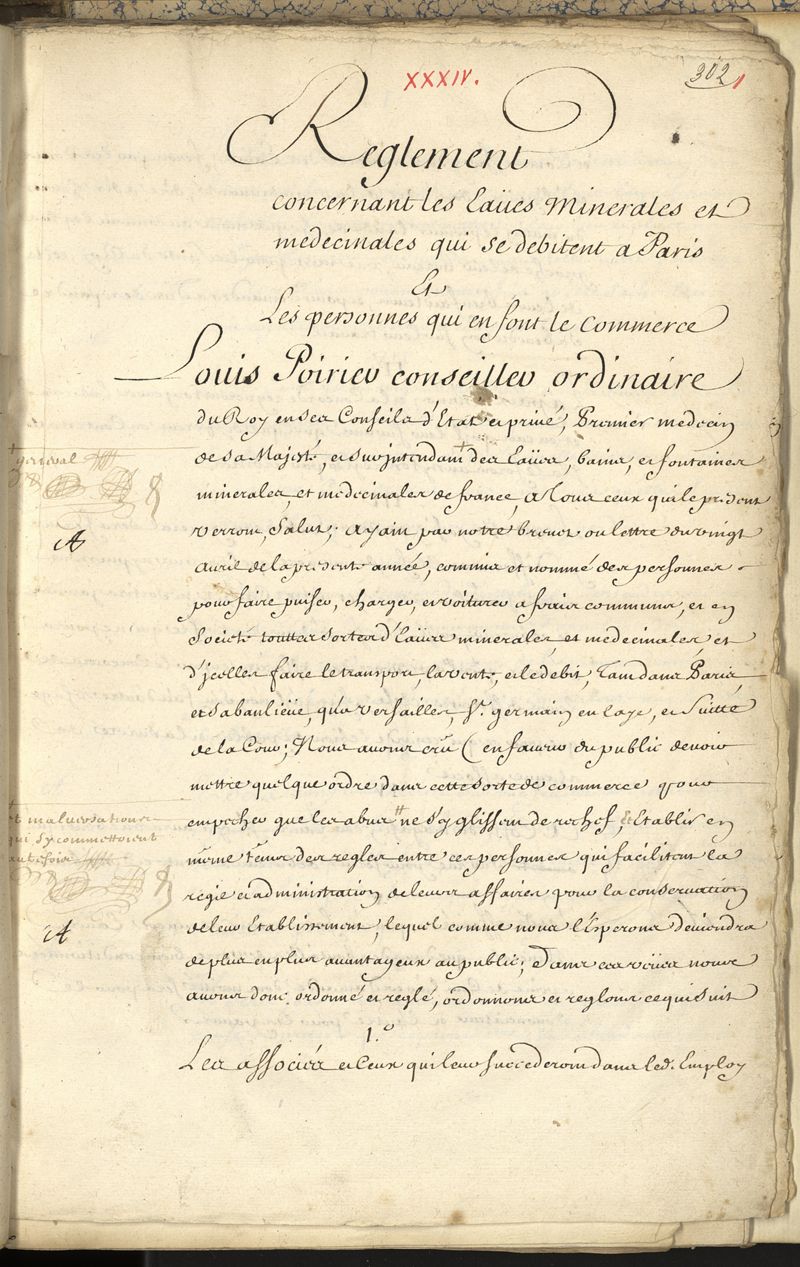 XXXIV.
302 1
Reglement
concernant les Eaües Minerales et
medecinales qui se debitent a Paris
Et
Les personnes qui en font le Commerce
Louis Poirier conseiller ordinaire
du Roy en ses Conseils d'Etat et privé, Premier medecin
de sa Majesté, et surjntendant + des Eaües, bains, et fontaines
+ general
minerales, et medecinales de france, a Tous ceux qui le present
verront, Salut; ayant par notre brevet ou lettre du vingt
avril de la presente année, commis et nommé des personnes
pour faire puiser, charger, et voiturer a frais communs, et en
Societé touttes sortes d'Eaües minerales, et medecinales, et
d'jcelles faire le transport, la vente, et le debit, Tant dans Paris
et sa banlieüe, qu'a versailles, St. germain en laye, et Suitte
de la Cour; Nous avons crû (en faveur du public devoir
mettre quelque ordre dans cette sorte de commerce pour
empecher que les abus # ne s'y glissent de rechef, et Etablir en
# et malversations
qui s'y commettoient
autefois
même tems des regles entre ces personnes qui facilitent la
regie et administration de leurs affaires pour la conservation
de leur Etablissement, lequel comme nous l'Esperons deviendra
de plus en plus avantageux au public; Dans ces vües nous
avons donc ordonné et reglé, ordonnons et reglons ce qui suit
1.o
Les associés et Ceux qui leur succederont dans led. Employ